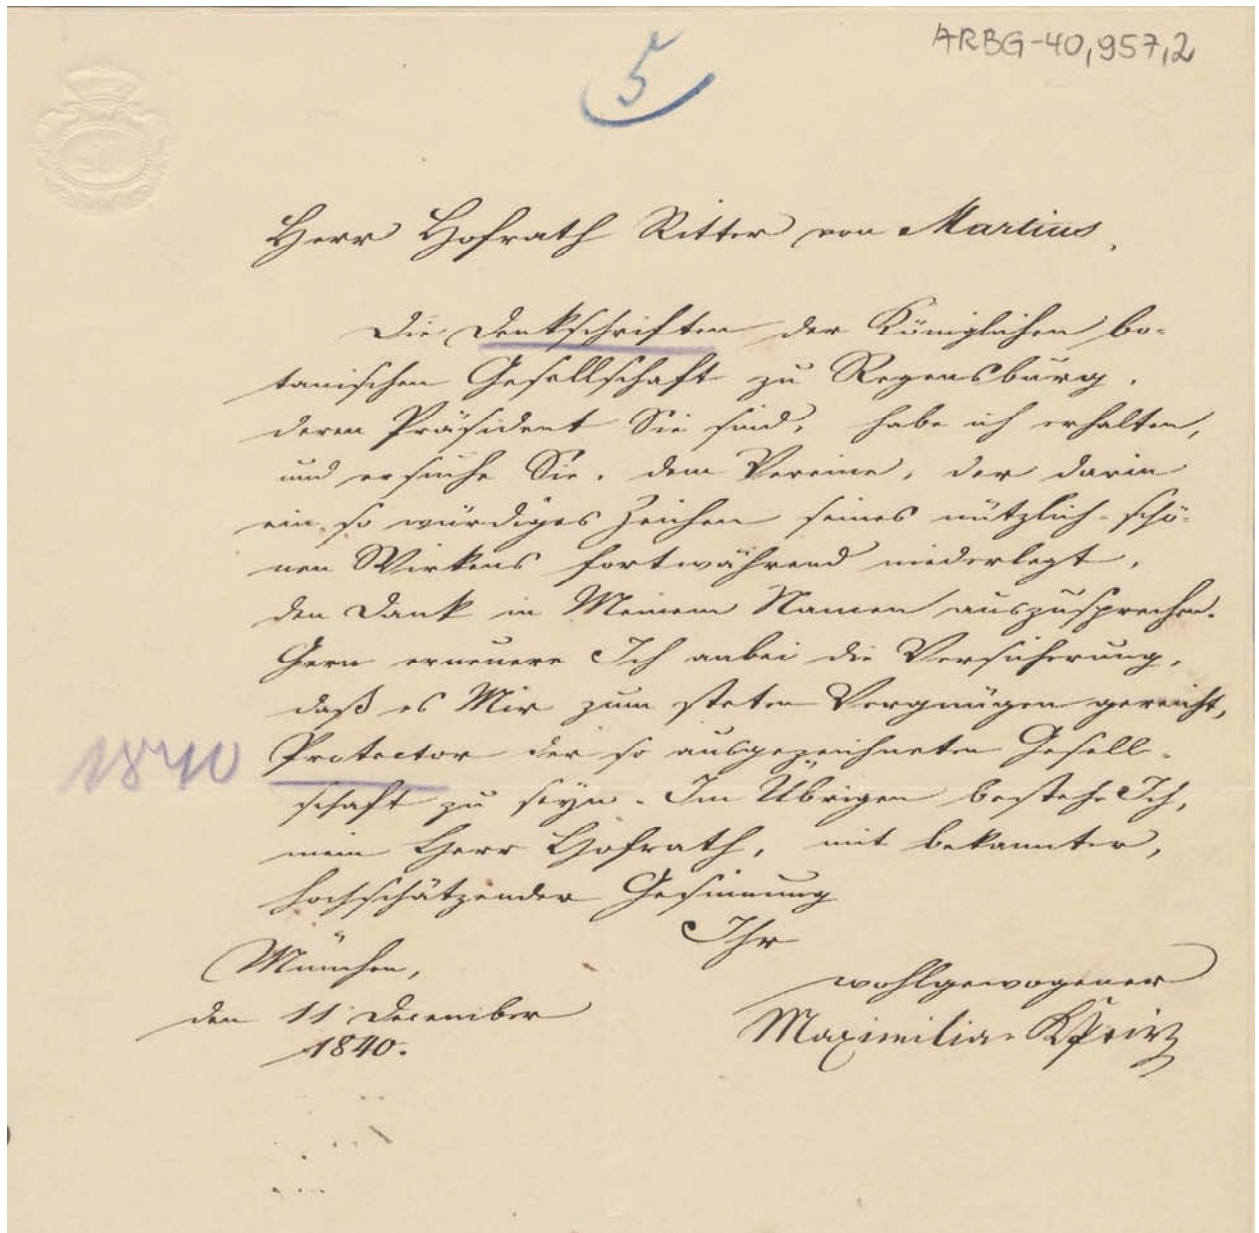 ARBG-40,957,2
5
Herr Hofrath Ritter von Martius,
Die Denkschriften der Königlichen bo-
tanischen Gesellschaft zu Regensburg,
deren Präsident Sie sind, habe ich erhalten,
und ersuche Sie, dem Vereine, der darin
ein so würdiges Zeichen seines nützlich-schö-
nen Wirkens fortwährend niederlegt,
den Dank in Meinem Namen auszusprechen.
Gern erneuere Ich anbei die Versicherung,
daß es Mir zum steten Vergnügen gereicht,
1840 Protector der so ausgezeichneten Gesell-
schaft zu seyn. Im Übrigen bestehe Ich,
mein Herr Hofrath, mit bekannter,
hochschätzender Gesinnung
Ihr
München,
wohlgewogener
den 11 December
Maximilian KPrinz
1840.